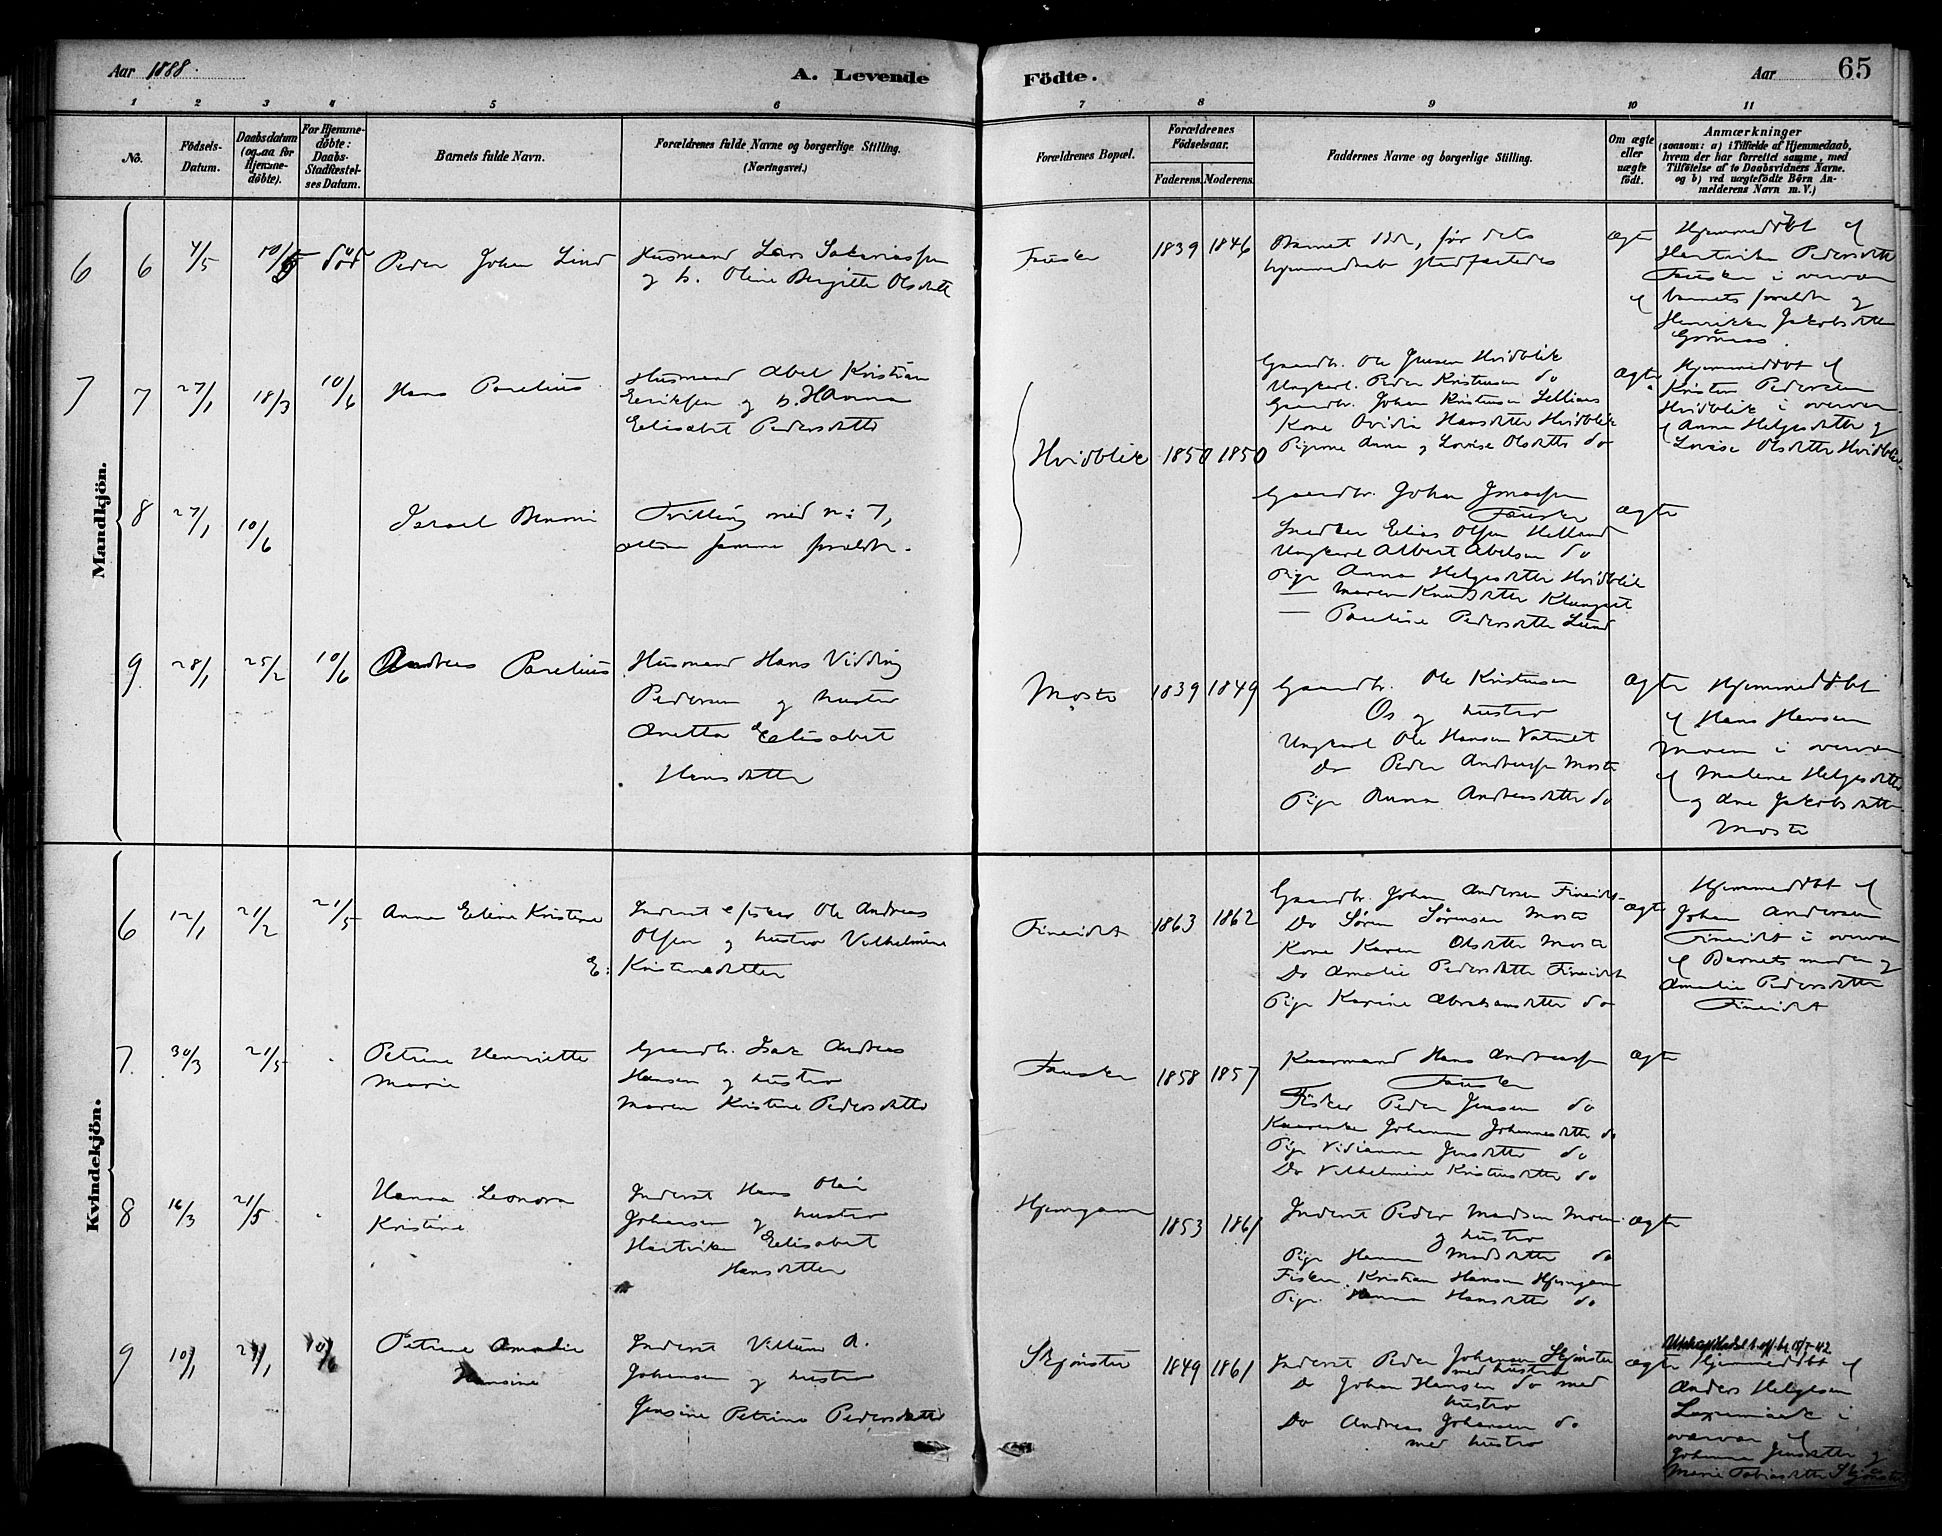 Aar 1888.
A. Levende
Födte.
Aar
65
1 2 3 4 5 6 7 8 9 10 11
No.
Födsels-
Datum.
Daabsdatum
(ogsaa for
Hjemme-
döbte).
For Hjemme-
döbte:
Daabs-
Stadfæstel-
ses Datum.
Barnets fulde Navn.
Forældrenes fulde Navne og borgerlige Stilling.
(Næringsvei.)
Forældrenes Bopæl.
Forældrenes
Födselsaar.
Faderens. Moderens.
Faddernes Navne og borgerlige Stilling.
Om ægte
eller
uægte
födt.
Anmærkninger
(saasom: a) i Tilfælde af Hjemmedaab,
hvem der har forrettet samme, med
Tilföielse af to Daabsvidners Navne.
og b) ved uægtefödte Börn An-
melderens Navn m. V.)
Mandkjön.
6 6 4/5 død Peder Johan Lind
Husmand Lars Sakariassen
og h. Oline Birgitte Olsdatt
Fauske 1839 1846
Barnet død, før dets
hjemmedaab stadfæstedes
Ægte
Hjemmedøbt af
Hartvika Pedersdtt
Fauske i overvær
af barnets forældr og
Henrikka Jakobsdatter
7 7 27/1 18/3 10/6 Hans Parelius
Husmand Abel Kristian
Eriksen og h. Hanna
Elisabet Pedersdatter
Hvidblik 1850 1850
Gaardbr. Ole Jensen Hvidblik
Ungkarl. Peder Kristensen do
Gaardbr. Johan Kristensen
Kone Ovidia Hansdatter Hvidblik
Pigerne Anna og Lovise Olsdatter do
Ægte
Hjemmedøbt af
Kristen Pedersen
Hvidblik i overvær
af Anna Helgesdatter og
Lovise Olsdatter Hvidblik
8 27/1 10/6 Israel Benoni
Tvilling med n: 7,
altsaa samme forældr.
Gaardbr. Johan
Fauske
Snedker Elias Olsen Helland
Ungkarl Albert Abelsen do
Pige Anna Helgesdatter Hvidblik
— Maren Knudsdatter Klungset
— Pauline Pedersdatter Lund
Ægte
9 28/1 25/2 10/6 Andreas Parelius
Husmand Hans Vidding
Pedersen og hustro
Anetta Elisabet
Hansdatter
Moste 1839 1849
Gaardbr. Ole Kristensen
Os og hustro
Ungkarl Ole Hansen Vatnet
Do Peder Andreassen Moste
Pige Anna Andreasdatter do
Ægte
Hjemmedøbt
af Hans Hansen
Moen i overvær
af Malene Helgesdatter
og Ane Jakobsdatter
Moste
Kvindekjön.
6 12/1 21/2 21/5 Anna Eline Kristine
Inderst & fisker Ole Andreas
Olsen og hustro Vilhelmine
E: Kristensdatter
Fineidet 1863 1862
Gaardbr. Johan Andersen Fineidet
Do Søren Sørensen Moste
Kone Karen Olsdatter Moste
Do Amalie Pedersdatter Fineidet
Pige Karine Abrahamsdatter do
Ægte
Hjemmedøbt af
Johan Andersen
Fineidet i overvær
af Barnets moder og
Amalie Pedersdatter
Fineidet
7. 30/3 21/5 - Petrine Henriette
Marie
Gaardbr. Isak Andreas
Hansen og hustro
Maren Kristine Pedersdatter
Fauske 1858 1857
Kaarmand Hans Andreassen
Fauske
Fisker Peder Jensen do
Kaarenke Johanna Johannesdatter do
Pige Vidianna Jensdatter do
Do Vilhelmine Kristensdatter do
Ægte
8 16/3 21/5 - Hanna Leonora
Kristine
Inderst Hans Olai
Johansen og hustro
Hartvika Elisabet
Hansdatter
Hjemgam 1853 1861
Inderst Peder Madsen Moen
og hustro
Pige Hanna Madsdatter do
Fisker Kristian Hansen Hjemgam
Pige Hanna Hansdatter do
Ægte
9 10/1 10/6 Petrine Amalie
Hansine
Inderst Villum A.
Johansen og hustro
Jensine Petrina Pedersdatter
Skjønster 1849 1861
Inderst Peder Johansen Skjønster
med hustro
Do Johan Hansen do med
hustro
Do Andreas Johansen do
med hustro
Ægte
Hjemmedøbt af
Anders Helgesen
i
overvær af
Johanna Jensdatter og
Marie Tobiasdatter Skjønster